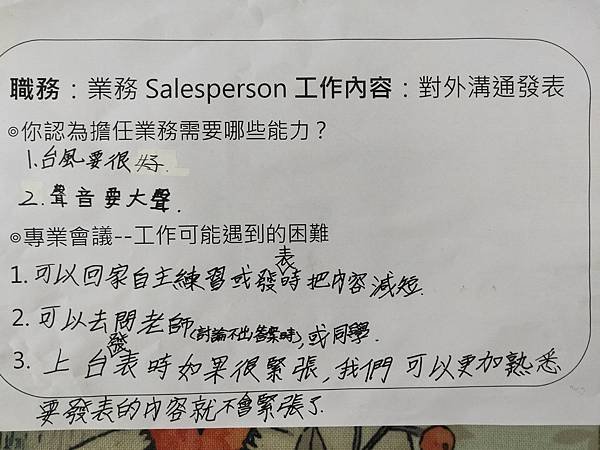 職務：業務 Salesperson 工作內容：對外溝通發表
◎你認為擔任業務需要哪些能力？
1.台風要很好.
2.聲音要大聲.
◎專業會議--工作可能遇到的困難
1.可以回家自主練習或發表時把內容減短.
2.可以去問老師(討論不出答案時),或同學.
3.上台發表時如果很緊張,我們可以更加熟悉
要發表的內容就不會緊張了.